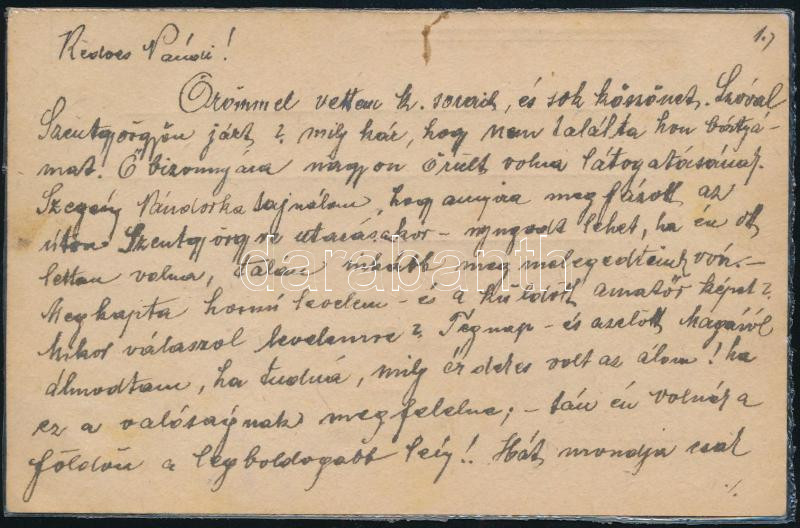 1.)
Kedves Nándi!
Örömmel vettem k. sorait, és sok köszönet. Szóval
Szentgyörgyön járt? mily kár, hogy nem találta hon bártyá-
mat. Ő bizonnyára nagyon örült volna látogatásának.
Szegény Nándorka sajnálom, hogy annyira megfázott az
úton Szentgyörgyre utazásakor - nyugodt lehet, ha én ott
lettem volna, talán inkább meg melegedtünk vón.-
Megkapta hosszú levelem - és a küldött amatőr képet?
Mikor válaszol levelemre? Tegnap - és azelőtt Magáról
álmodtam, ha tudná, mily érdekes volt az álom! ha
ez a valóságnak megfelelne; - tán én volnék a
földön a legboldogabb leíy!. Hát mondja csak
./.
darabanth